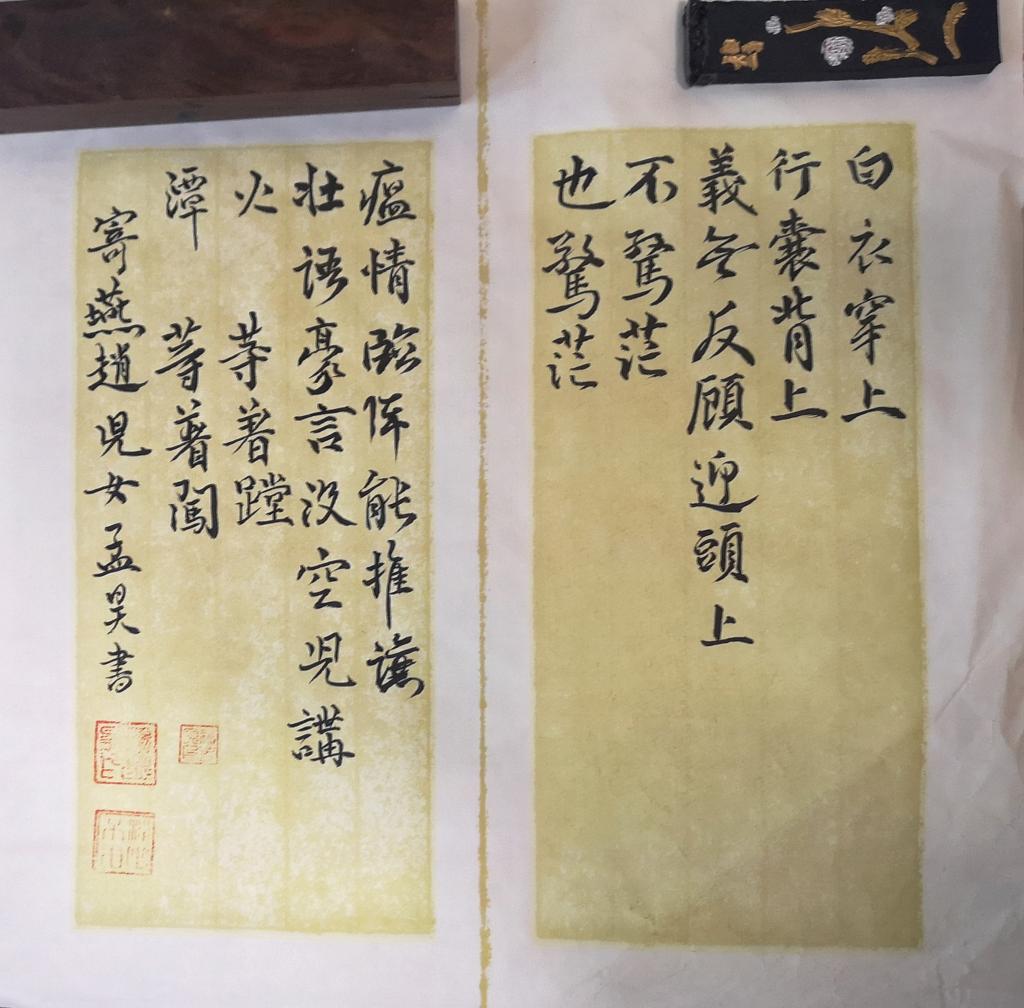 白衣穿上
行囊背上
義無反顧迎頭上
不驚茫
也驚茫
瘟情臨陣能推讓
壯語豪言没空兒講
火 等着蹚
潭 等著闖
寄燕趙兒女孟昊書